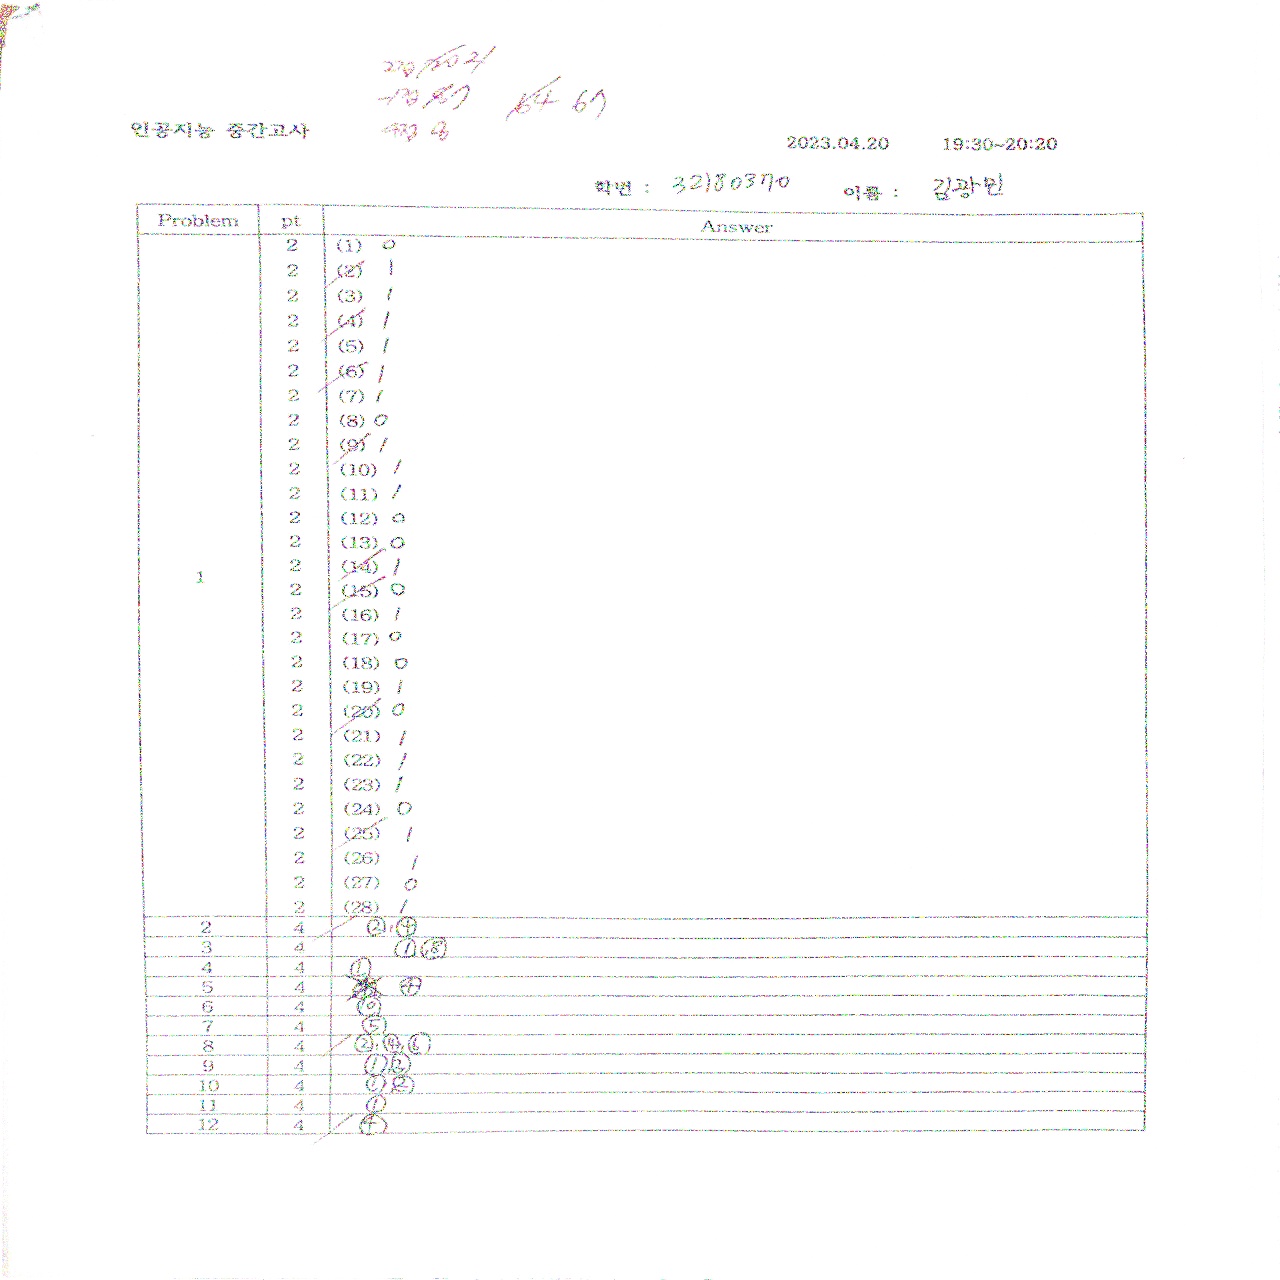 64 67
인공지능 중간고사
2023.04.20 19:30~20:20
학번 : 32180370 이름 : 김광민
Problem pt Answer
1
2 (1) 0
2 (2) 1
2 (3) 1
2 (4) 1
2 (5) 1
2 (6) 1
2 (7) 1
2 (8) 0
2 (9) 1
2 (10) 1
2 (11) 1
2 (12) 0
2 (13) 0
2 (14) 1
2 (15) 0
2 (16) 1
2 (17) 0
2 (18) 0
2 (19) 1
2 (20) 0
2 (21) 1
2 (22) 1
2 (23) 1
2 (24) 0
2 (25) 1
2 (26) 1
2 (27) 0
2 (28) 1
2 4 ②, ④
3 4 ①, ⑧
4 4 ①
5 4 ④
6 4
7 4 ⑤
8 4 ②, ④, ⑥
9 4 ① ②
10 4 ① ②
11 4 ①
12 4 ④